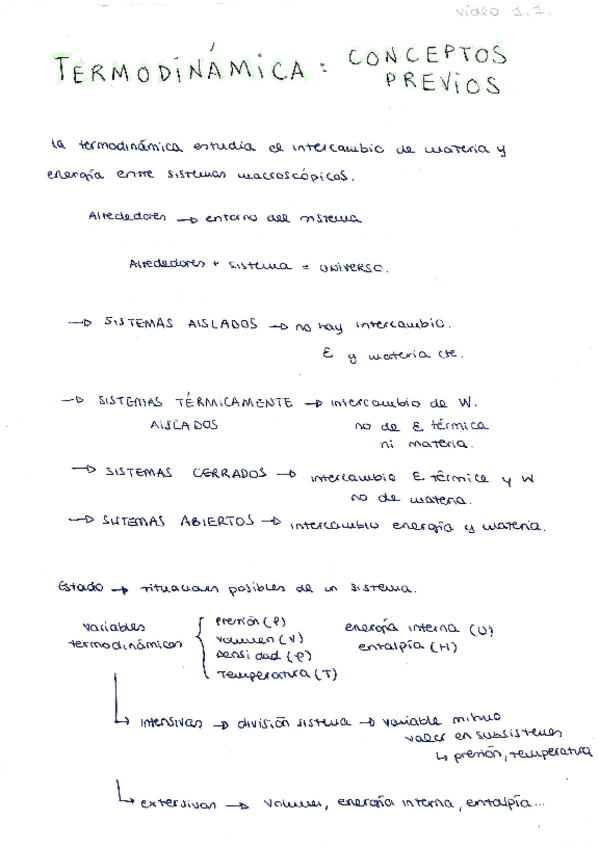 video 1.1.
TERMODINÁMICA: CONCEPTOS PREVIOS
la termodinámica estudia el intercambio de materia y
energía entre sistemas macroscópicos.
Alrededores → entorno del sistema
Alrededores + sistema = universo.
→ SISTEMAS AISLADOS → no hay intercambio.
E y materia cte.
→ SISTEMAS TÉRMICAMENTE → intercambio de W.
AISLADOS no de E térmica
ni materia.
→ SISTEMAS CERRADOS → intercambio E térmica y W
no de materia.
→ SISTEMAS ABIERTOS → intercambio energía y materia.
Estado → situaciones posibles de un sistema.
variables termodinámicas
presión (P)
volumen (V)
densidad (ρ)
Temperatura (T)
energía interna (U)
entalpía (H)
↳ intensivas → división sistema → variable mismo
valor en subsistemas
↳ presión, temperatura
↳ extensivas → volumen, energía interna, entalpía...